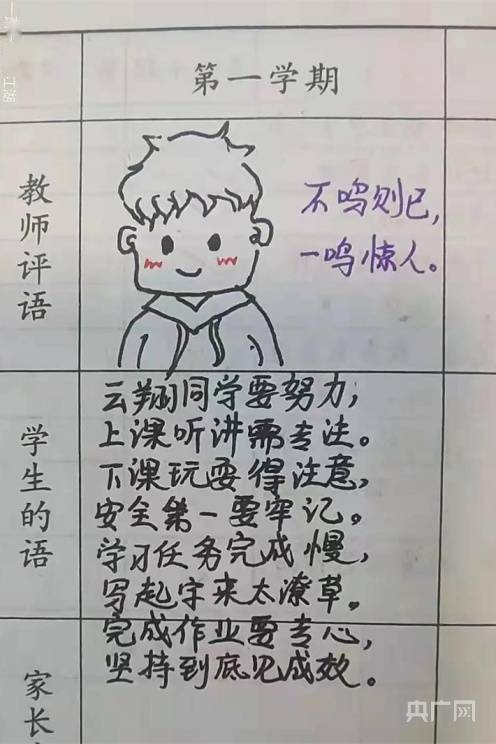 第一学期
教师评语
不鸣则已，
一鸣惊人。
学生的语
云翔同学要努力，
上课听讲需专注。
下课玩耍得注意，
安全第一要牢记。
学习任务完成慢，
写起字来太潦草。
完成作业要专心，
坚持到底见成效。
家长
央广网